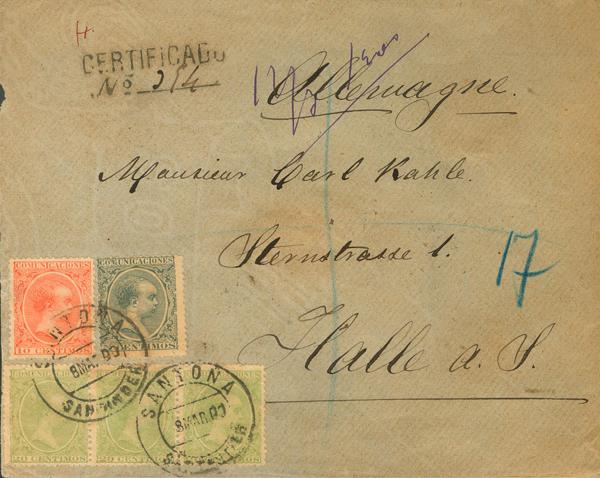 H.
CERTIFICADO
Nº 254
Allemagne.
Monsieur Carl Kahle.
Sternstrasse 1.
17
Halle a. S.
COMUNICACIONES
10 CENTIMOS
COMUNICACIONES
CENTIMOS
SANTOÑA
8 MAR 00
SANTANDER
SANTOÑA
8 MAR 00
SANTANDER
20 CENTIMOS
20 CENTIMOS
20 CENTIMOS